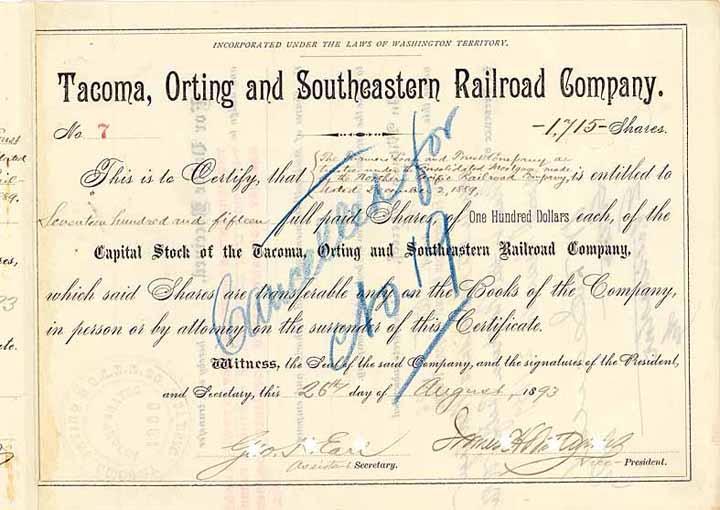 INCORPORATED UNDER THE LAWS OF WASHINGTON TERRITORY.
Tacoma, Orting and Southeastern Railroad Company.
No. 7 -1,715- Shares.
This is to Certify, that The Farmers Loan and Trust Company as
Trustee under Consolidated Mortgage made
by the Northern Pacific Railroad Company, is entitled to
dated December 2, 1889,
Seventeen hundred and fifteen full paid Shares, of One Hundred Dollars each, of the
Capital Stock of the Tacoma, Orting and Southeastern Railroad Company,
which said Shares are transferable only on the Books of the Company,
in person or by attorney on the surrender of this Certificate.
Witness, the Seal of the said Company, and the signatures of the President,
and Secretary, this 26th day of August, 1893
Geo. Earl
Assistant Secretary. Vice- President.
Cancelled for
No 19